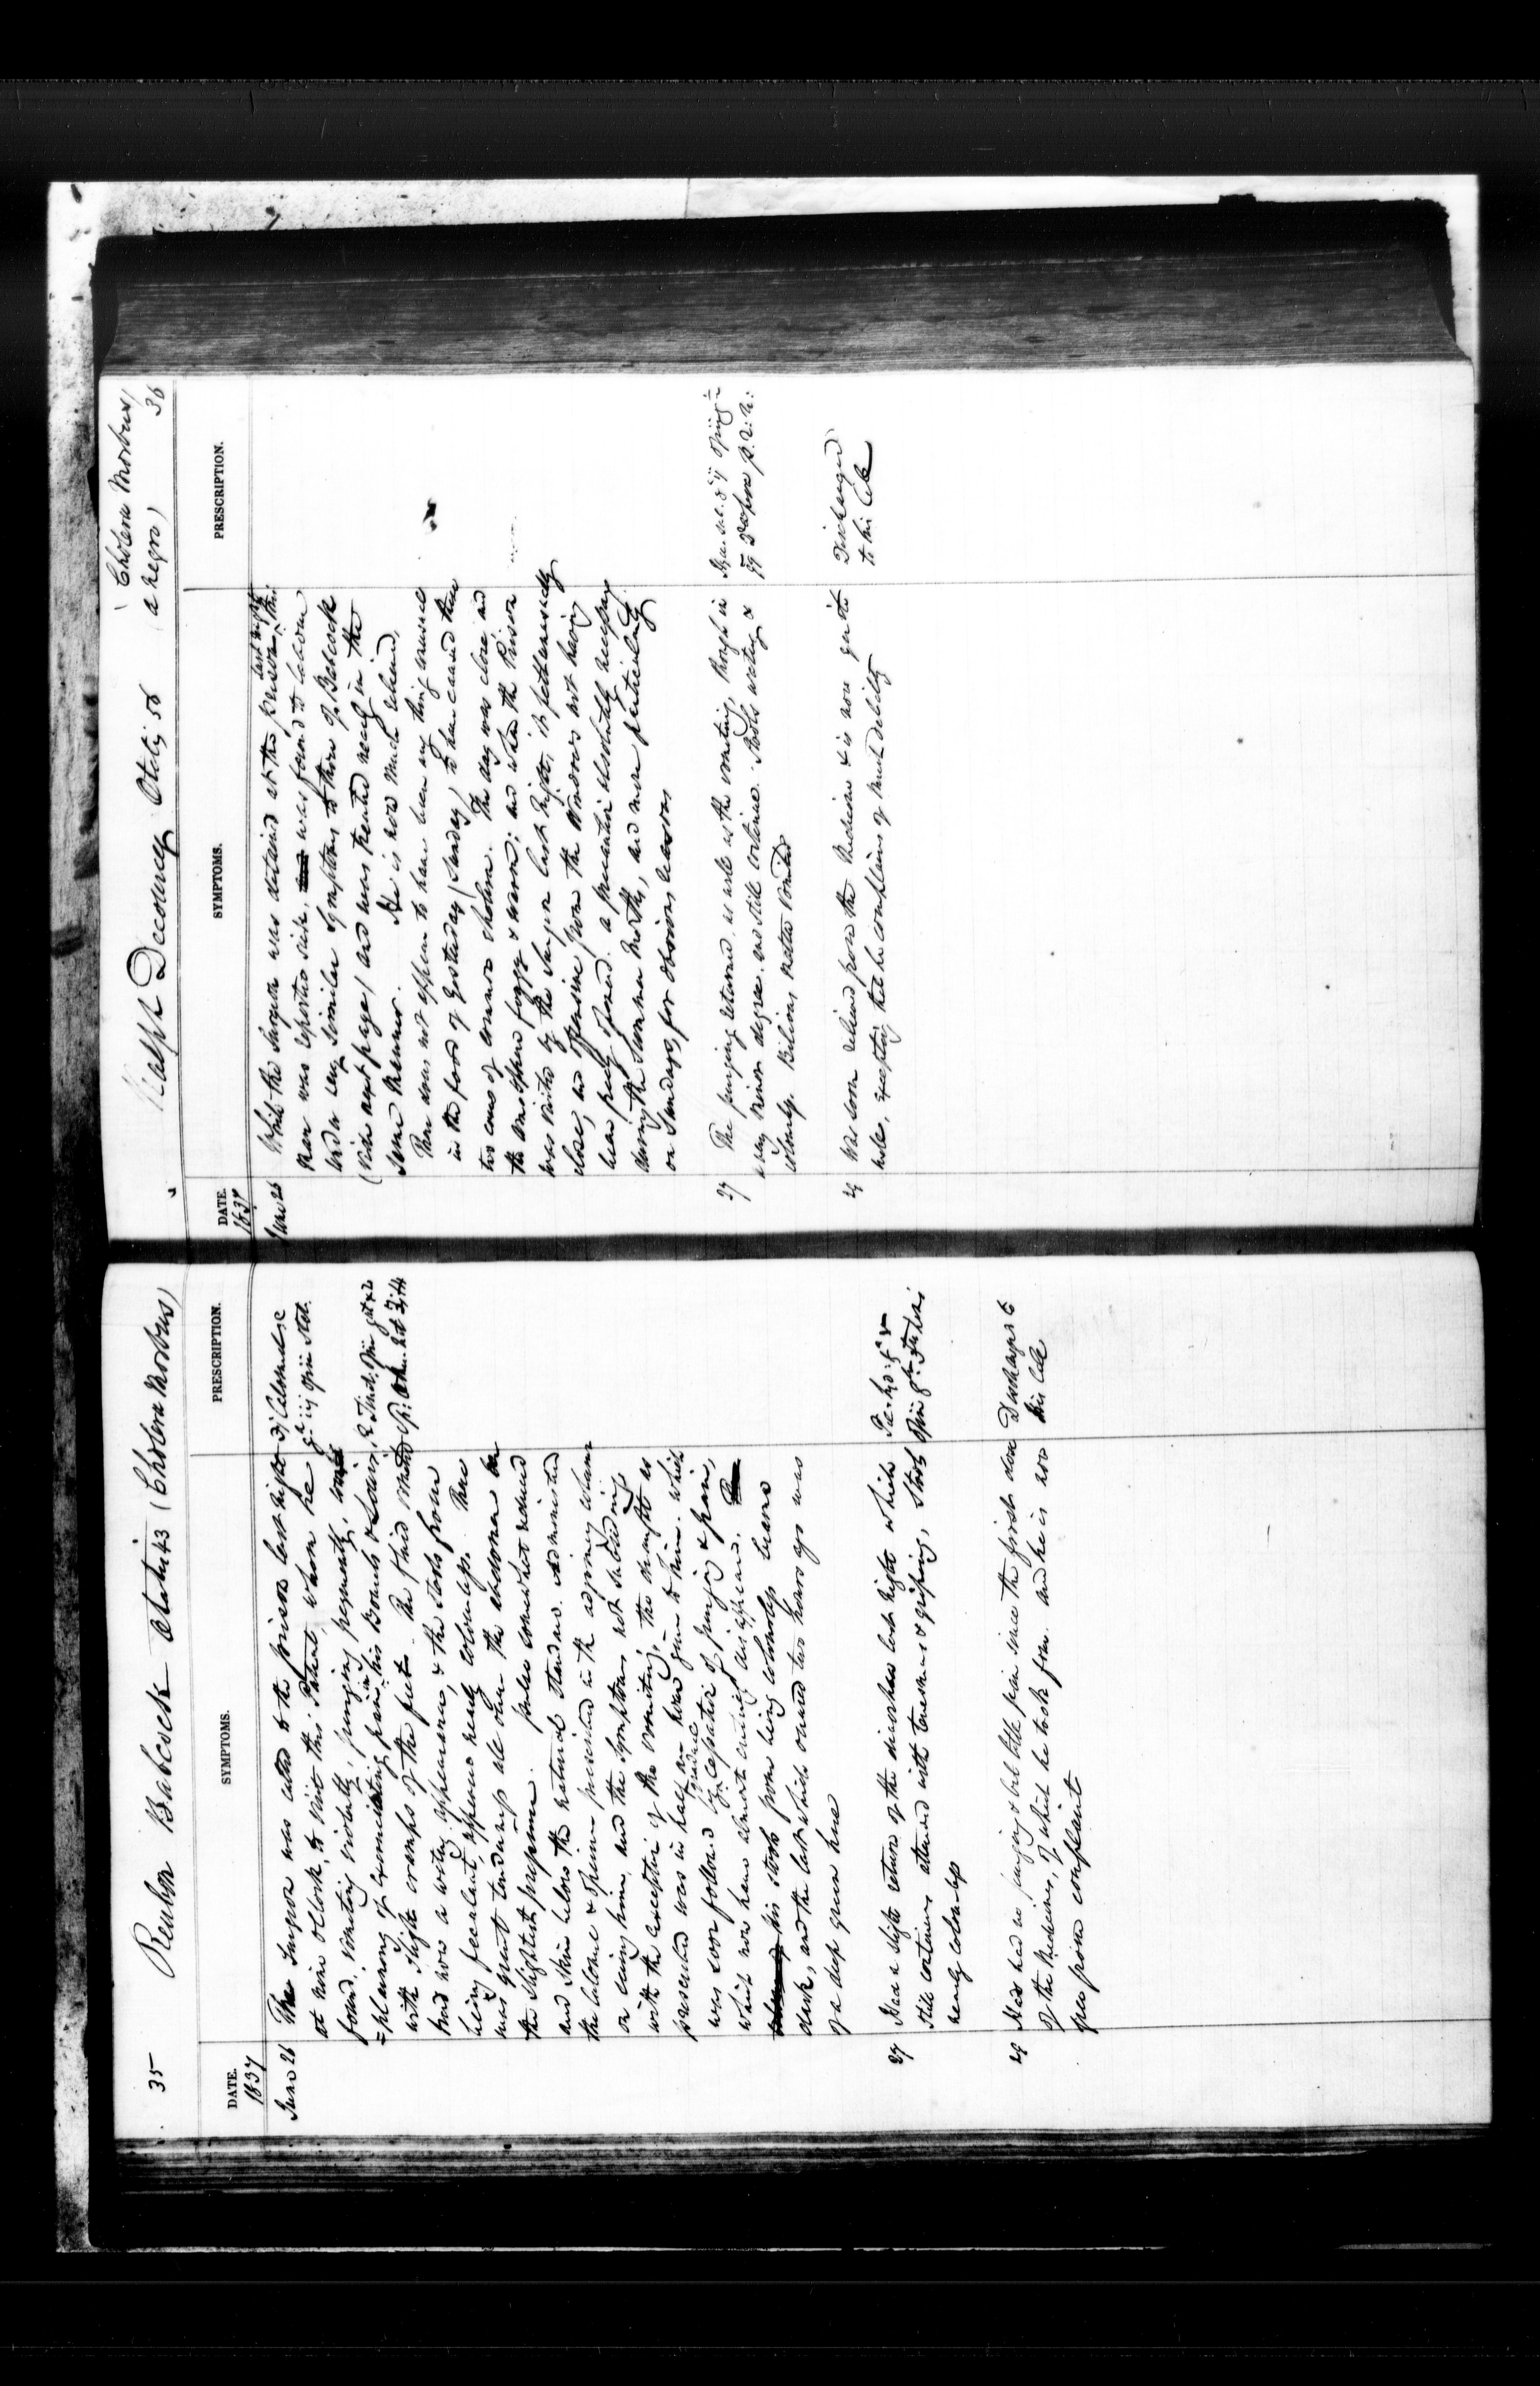 35 Reuben Babcock Ætatis 43 (Cholera Morbus)
DATE. SYMPTOMS. PRESCRIPTION.
1837
June 26 The Surgeon was called to the prison last night
at nine oClock, to visit this Patient, whom he
found vomiting violently, purging frequently,
complaining of excruciating pain in his Bowels & Loins,
with slight cramps of the feet. The fluid vomited
had now a watery appearance, & the stools from
being feculent, appeared nearly colourless. There
was great tenderness all over the abdomen on
the slightest pressure. pulse somewhat reduced
and skin below the natural standard. Administered
the Calomel & Opium prescribed in the adjoining column
on seeing him, and the symptoms not subsiding
with the exception of the vomiting, the draught as
prescribed was in half an hour given to him. which
was soon followed by gradual cessation of purging & pain,
which now have almost entirely disappeared.
his stools from being colourless became
dark, and the last which occurred two hours ago was
of a deep green hue
℞ Calomel
Opii Stat.
℞ Tinct. Opii
27 Had a slight return of the diarrhœa last night which
still continues attended with tenesmus & griping, Stools
nearly colourless
28 Has had no purging & but little pain since the first dose
of the Medicine, of which he took four. and he is now
free from complaint
Discharged to
his Cell
Ralph Decourcey Ætatis 50 (Cholera Morbus)
(a negro) 36
DATE. SYMPTOMS. PRESCRIPTION.
1837
June 26 While the Surgeon was detained at the prison last night, this
man was reported sick, was found to labour
under very similar symptoms to those of Babcock
(Vide next page) and was treated nearly in the
same manner. He is now much relieved.
There does not appear to have been any thing unusual
in the food of yesterday (Sunday) to have caused these
two cases of common cholera. The day was close and
the atmosphere foggy & warm; and when the Prison
was visited by the Surgeon last night, it felt unusually
close, and offensive from the Windows not having
been freely opened. a precaution absolutely necessary
during the Summer Months, and more particularly
on Sundays, for obvious reasons
27 The purging returned, as well as the vomiting, though in
a very minor degree. and still continue. Stools watery &
colourless. Bilious matter vomited
28 Was soon relieved from the Medicine & is now quite
well, excepting that he complains of much debility
Discharged
to his Cell